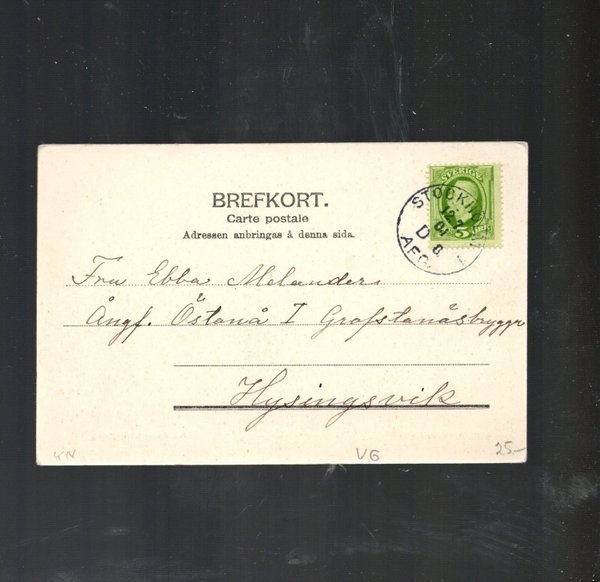 BREFKORT.
Carte postale
Adressen anbringas å denna sida.
SVERIGE
5
STOCKH
D
AFG.
Fru Ebba Melander
Ångf. Östanå I Grafstanäsbrygga
Hysingsvik
VG
25-